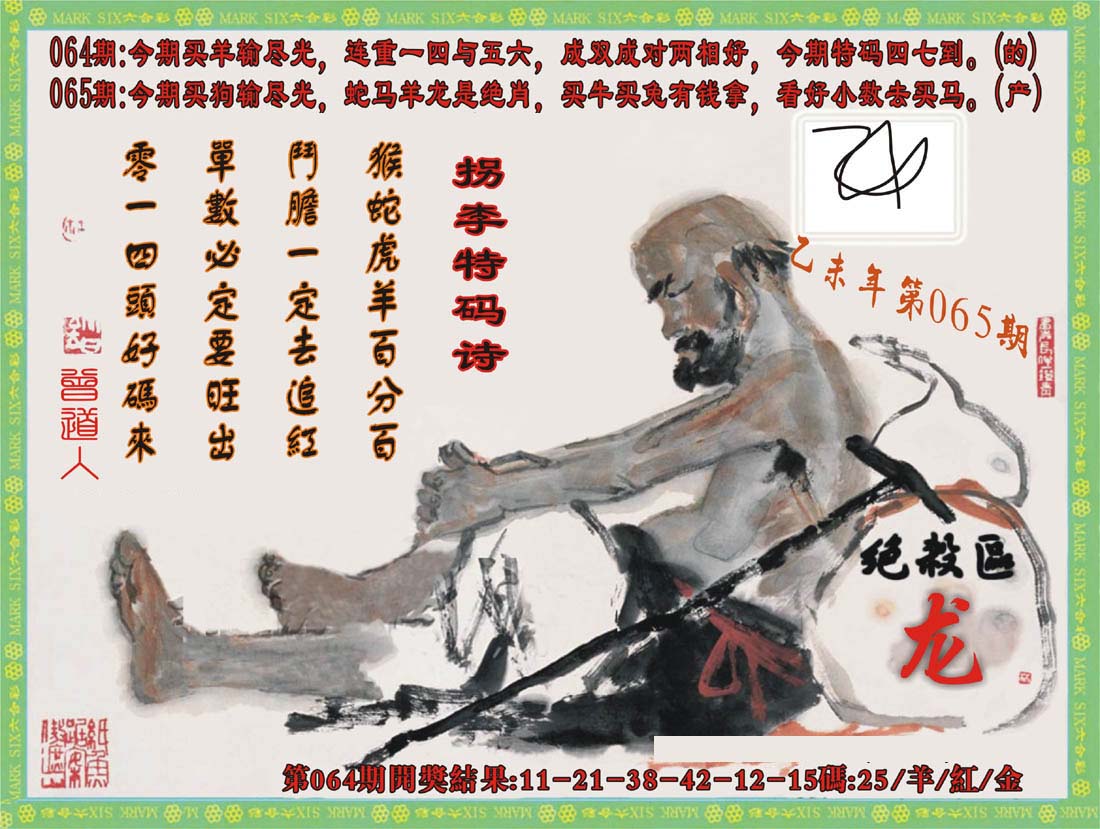 MARK SIX六合彩 MARK SIX六合彩 MARK SIX六合彩 MARK SIX六合彩 MARK SIX六合彩 MARK SIX六合彩
064期:今期买羊输尽光，连重一四与五六，成双成对两相好，今期特码四七到。(的)
065期:今期买狗输尽光，蛇马羊龙是绝肖，买牛买兔有钱拿，看好小数去买马。(产)
拐李特码诗
猴蛇虎羊百分百
鬥膽一定去追紅
單數必定要旺出
零一四頭好碼來
曾道人
乙未年第065期
绝殺區
龙
第064期開獎結果:11-21-38-42-12-15碼:25/羊/紅/金